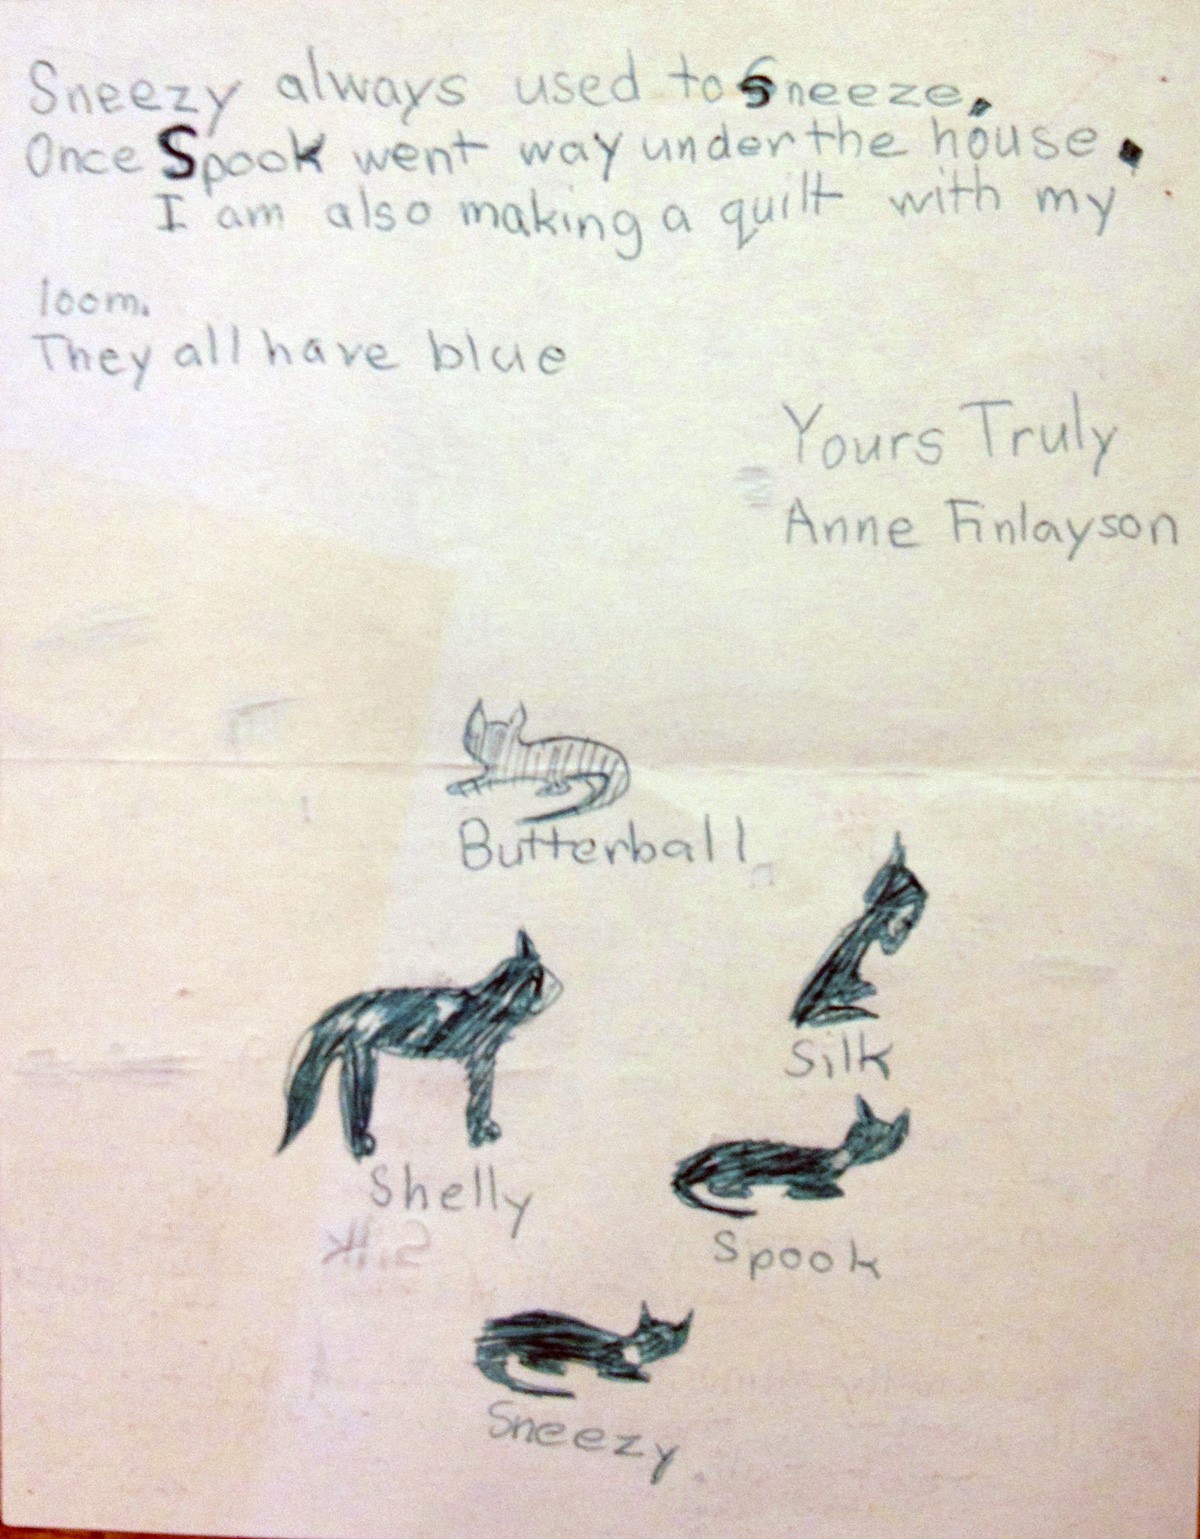 Sneezy always used to Sneeze.
Once Spook went way under the house.
I am also making a quilt with my
loom.
They all have blue
Yours Truly
Anne Finlayson
Butterball
Silk
Shelly
Spook
Silk
Sneezy.